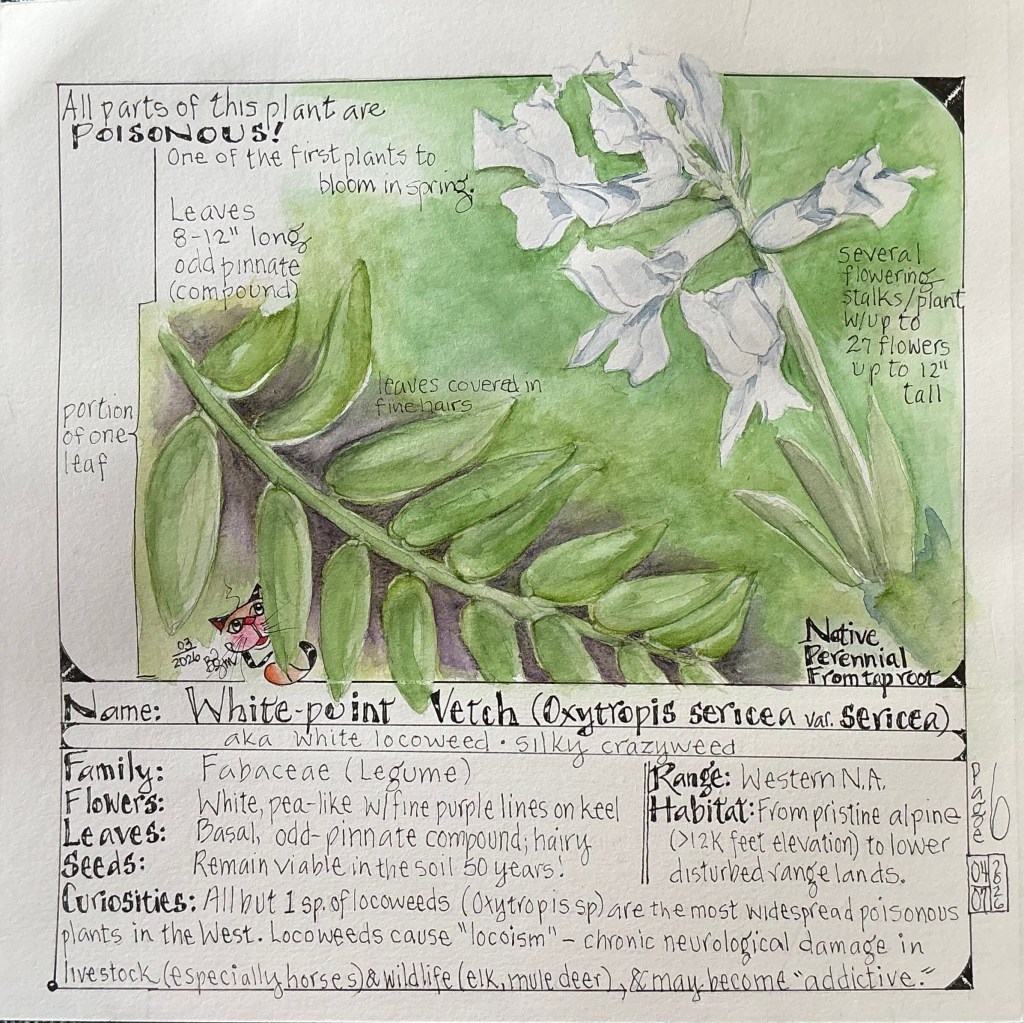 All parts of this plant are
POISONOUS!
One of the first plants to
bloom in spring.
Leaves
8-12" long
odd pinnate
(compound)
several
flowering
stalks/plant
w/up to
27 flowers
up to 12"
tall
leaves covered in
fine hairs
portion
of one
leaf
03
2026
Native
Perennial
From tap root
Name: White-point Vetch (Oxytropis sericea var. sericea)
aka white locoweed · silky crazyweed
Family: Fabaceae (Legume)
Flowers: White, pea-like w/fine purple lines on keel
Leaves: Basal, odd-pinnate compound; hairy
Seeds: Remain viable in the soil 50 years!
Range: Western N.A.
Habitat: From pristine alpine
(>12K feet elevation) to lower
disturbed range lands.
Page 6
04 2
07 26
Curiosities: All but 1 sp. of locoweeds (Oxytropis sp) are the most widespread poisonous
plants in the West. Locoweeds cause "locoism" – chronic neurological damage in
livestock (especially horses) & wildlife (elk, mule deer), & may become "addictive."